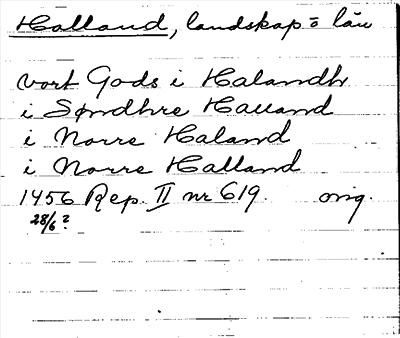 Halland, landskap o län
vort Gods i Halandh
i Søndhre Hauand
i Norre Haland
i Norre Halland
1456 Rep. II nr 619. orig.
28/6?